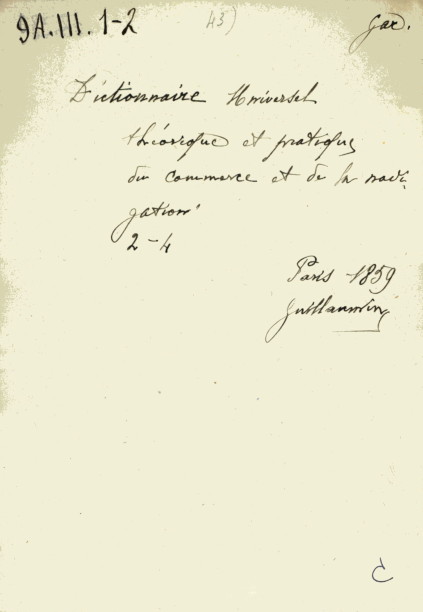 9A.III.1-2 43) Gar.
Dictionnaire Universel
théorique et pratique
du commerce et de la navi-
gation
2-4
Paris 1859
Guillaumin
C